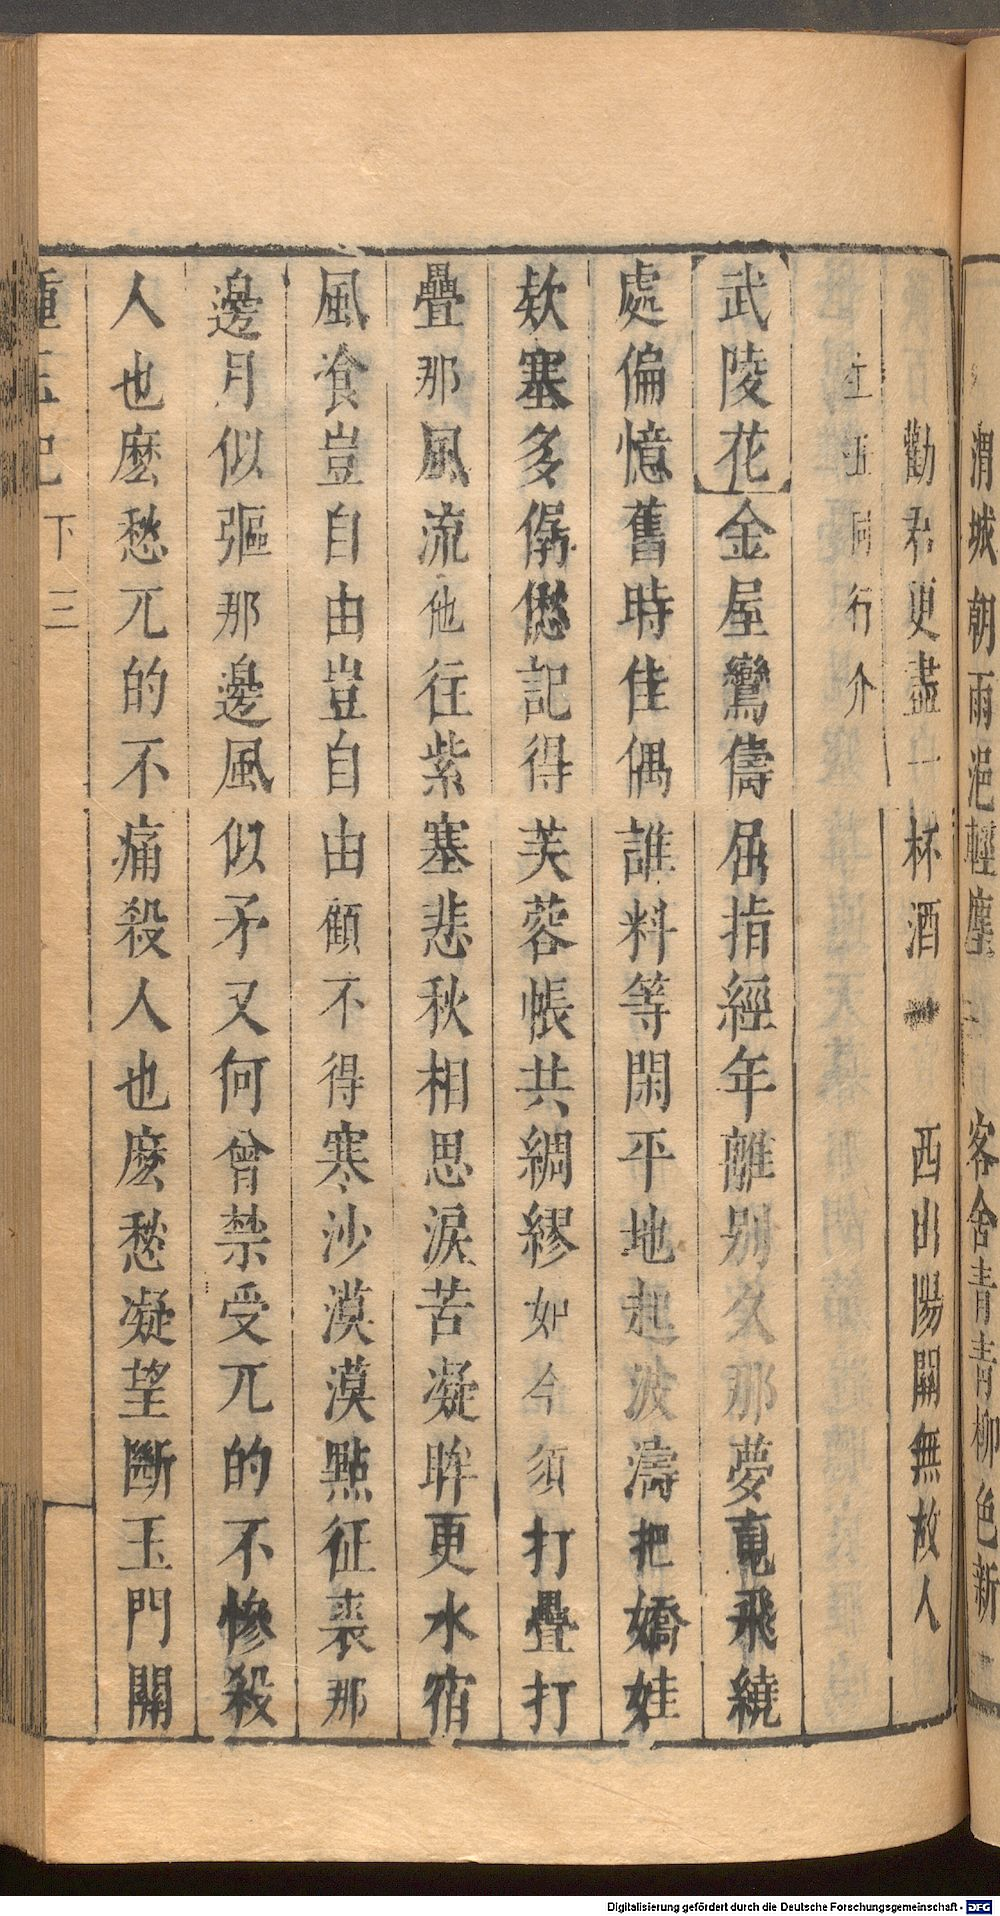 渭城朝雨浥輕塵 客舍青青柳色新
勸君更盡一杯酒 西出陽關無故人
同行介
武陵花金屋鸞儔屈指經年離别久那夢䰟飛繞
處偏憶舊時佳偶誰料等閑平地起波濤把嬌娃
欸塞多僝僽記得芙蓉帳共綢繆如今須打疊打
疊那風流他往紫塞悲秋相思淚苦凝眸更水宿
風飡豈自由豈自由顧不得寒沙漠漠點征裘那
邊月似彄那邊風似矛又何曾禁受兀的不慘殺
人也麽愁兀的不痛殺人也麽愁凝望斷玉門關
下 三
Digitalisierung gefördert durch die Deutsche Forschungsgemeinschaft - DFG